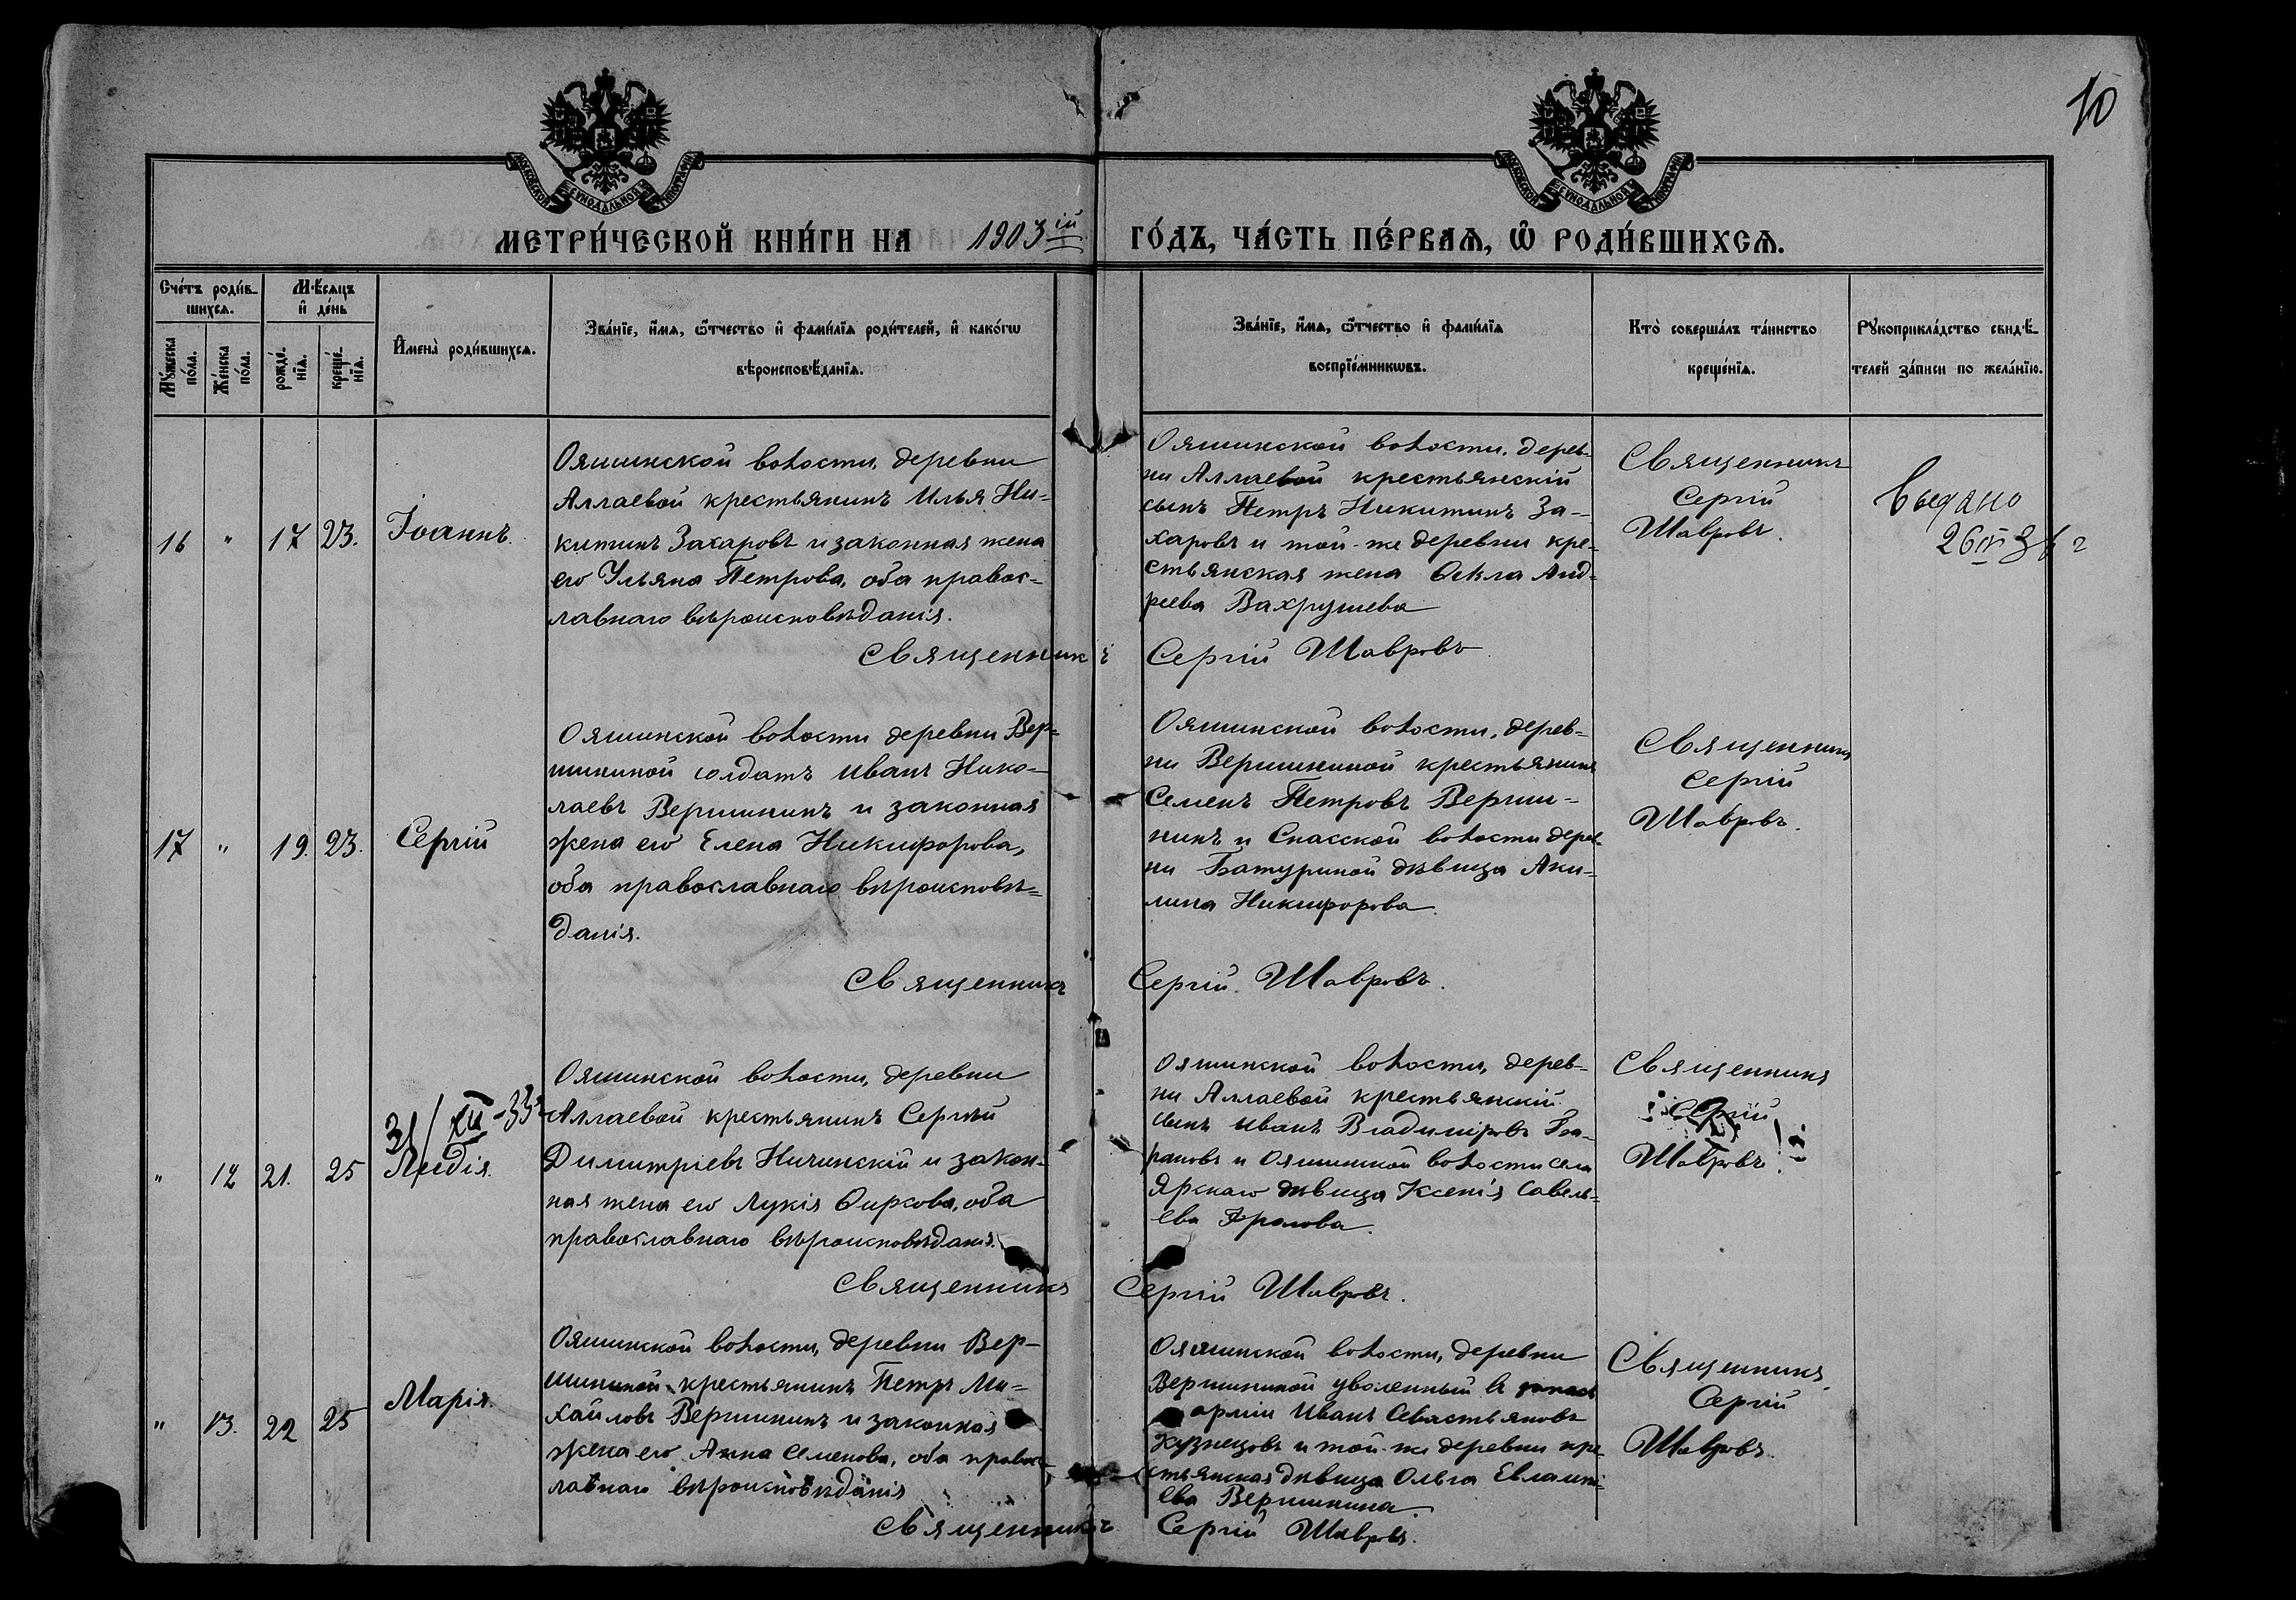 10
МОСКОВСКОЙ СѴНОДАЛЬНОЙ ТИПОГРАФІИ
МОСКОВСКОЙ СѴНОДАЛЬНОЙ ТИПОГРАФІИ
МЕТРИ́ЧЕСКОЙ КНИ́ГИ НА 1903 ій ГО́ДЪ, ЧА́СТЬ ПЕ́РВАѦ, Ѡ҆ РОДИ́ВШИХСѦ.
Сче́тъ роди́в-
шихсѧ.
Мѣ́сѧцъ
и҆ де́нь
Мꙋ́жеска
по́ла.
Же́нска
по́ла.
рожде́-
нїѧ.
креще́-
нїѧ.
И҆мена̀ роди́вшихсѧ.
Зва́нїе, и҆́мѧ, ѻ҆́тчество и҆ фами́лїѧ роди́телей, и҆ како́гѡ
вѣроисповѣ́данїѧ.
Зва́нїе, и҆́мѧ, ѻ҆́тчество и҆ фами́лїѧ
воспрїе́мникѡвъ.
Кто̀ соверша́лъ та́инство
креще́нїѧ.
Рꙋкоприкла́дство свидѣ́-
телей за́писи по жела́нїю.
16 " 17 23. Іоаннъ.
Ояшинской волости, деревни
Аллаевой крестьянинъ Илья Ни-
китинъ Захаровъ и законная жена
его Ульяна Петрова, оба правос-
лавнаго вѣроисповѣданія.
Ояшинской волости, дерев-
ни Аллаевой крестьянскій
сынъ Петръ Никитинъ За-
харовъ и той-же деревни кре-
стьянская жена Ѳекла Анд-
реева Вахрушева
Священникъ
Сергій
Шавровъ.
Выдано
Священникъ Сергій Шавровъ
17 " 19. 23. Сергій
Ояшинской волости деревни Вер-
шининой солдатъ Иванъ Нико-
лаевъ Вершининъ и законная
жена его Елена Никифорова,
оба православнаго вѣроисповѣ-
данія.
Ояшинской волости, дерев-
ни Вершининой крестьянинъ
Семенъ Петровъ Верши-
нинъ и Спасской волости дерев-
ни Батуриной дѣвица Аки-
лина Никифорова.
Священникъ
Сергій
Шавровъ.
Священникъ Сергій Шавровъ.
31/XII-33г
" 12 21. 25 Лидія.
Ояшинской волости, деревни
Аллаевой крестьянинъ Сергѣй
Димитріевъ Ничинскій и закон-
ная жена его Лукія Ѳирсова, оба
православнаго вѣроисповѣданія.
Ояшинской волости, дерев-
ни Аллаевой крестьянскій
сынъ Иванъ Владиміровъ Ба-
рановъ и Ояшинской волости села
Ярскаго дѣвица Ксенія Савель-
ева Фролова.
Священникъ
Сергій
Шавровъ.
Священникъ Сергій Шавровъ.
" 13. 22 25 Марія.
Ояшинской волости, деревни Вер-
шининой крестьянинъ Петръ Ми-
хайловъ Вершининъ и законная
жена его Анна Семенова, оба правос-
лавнаго вѣроисповѣданія
Ояшинской волости, деревни
Вершининой уволенный въ запасъ
арміи Иванъ Севастьяновъ
Кузнецовъ и той-же деревни кре-
стьянская дѣвица Ольга Евлампі-
ева Вершинина.
Священникъ
Сергій
Шавровъ.
Священникъ Сергій Шавровъ.